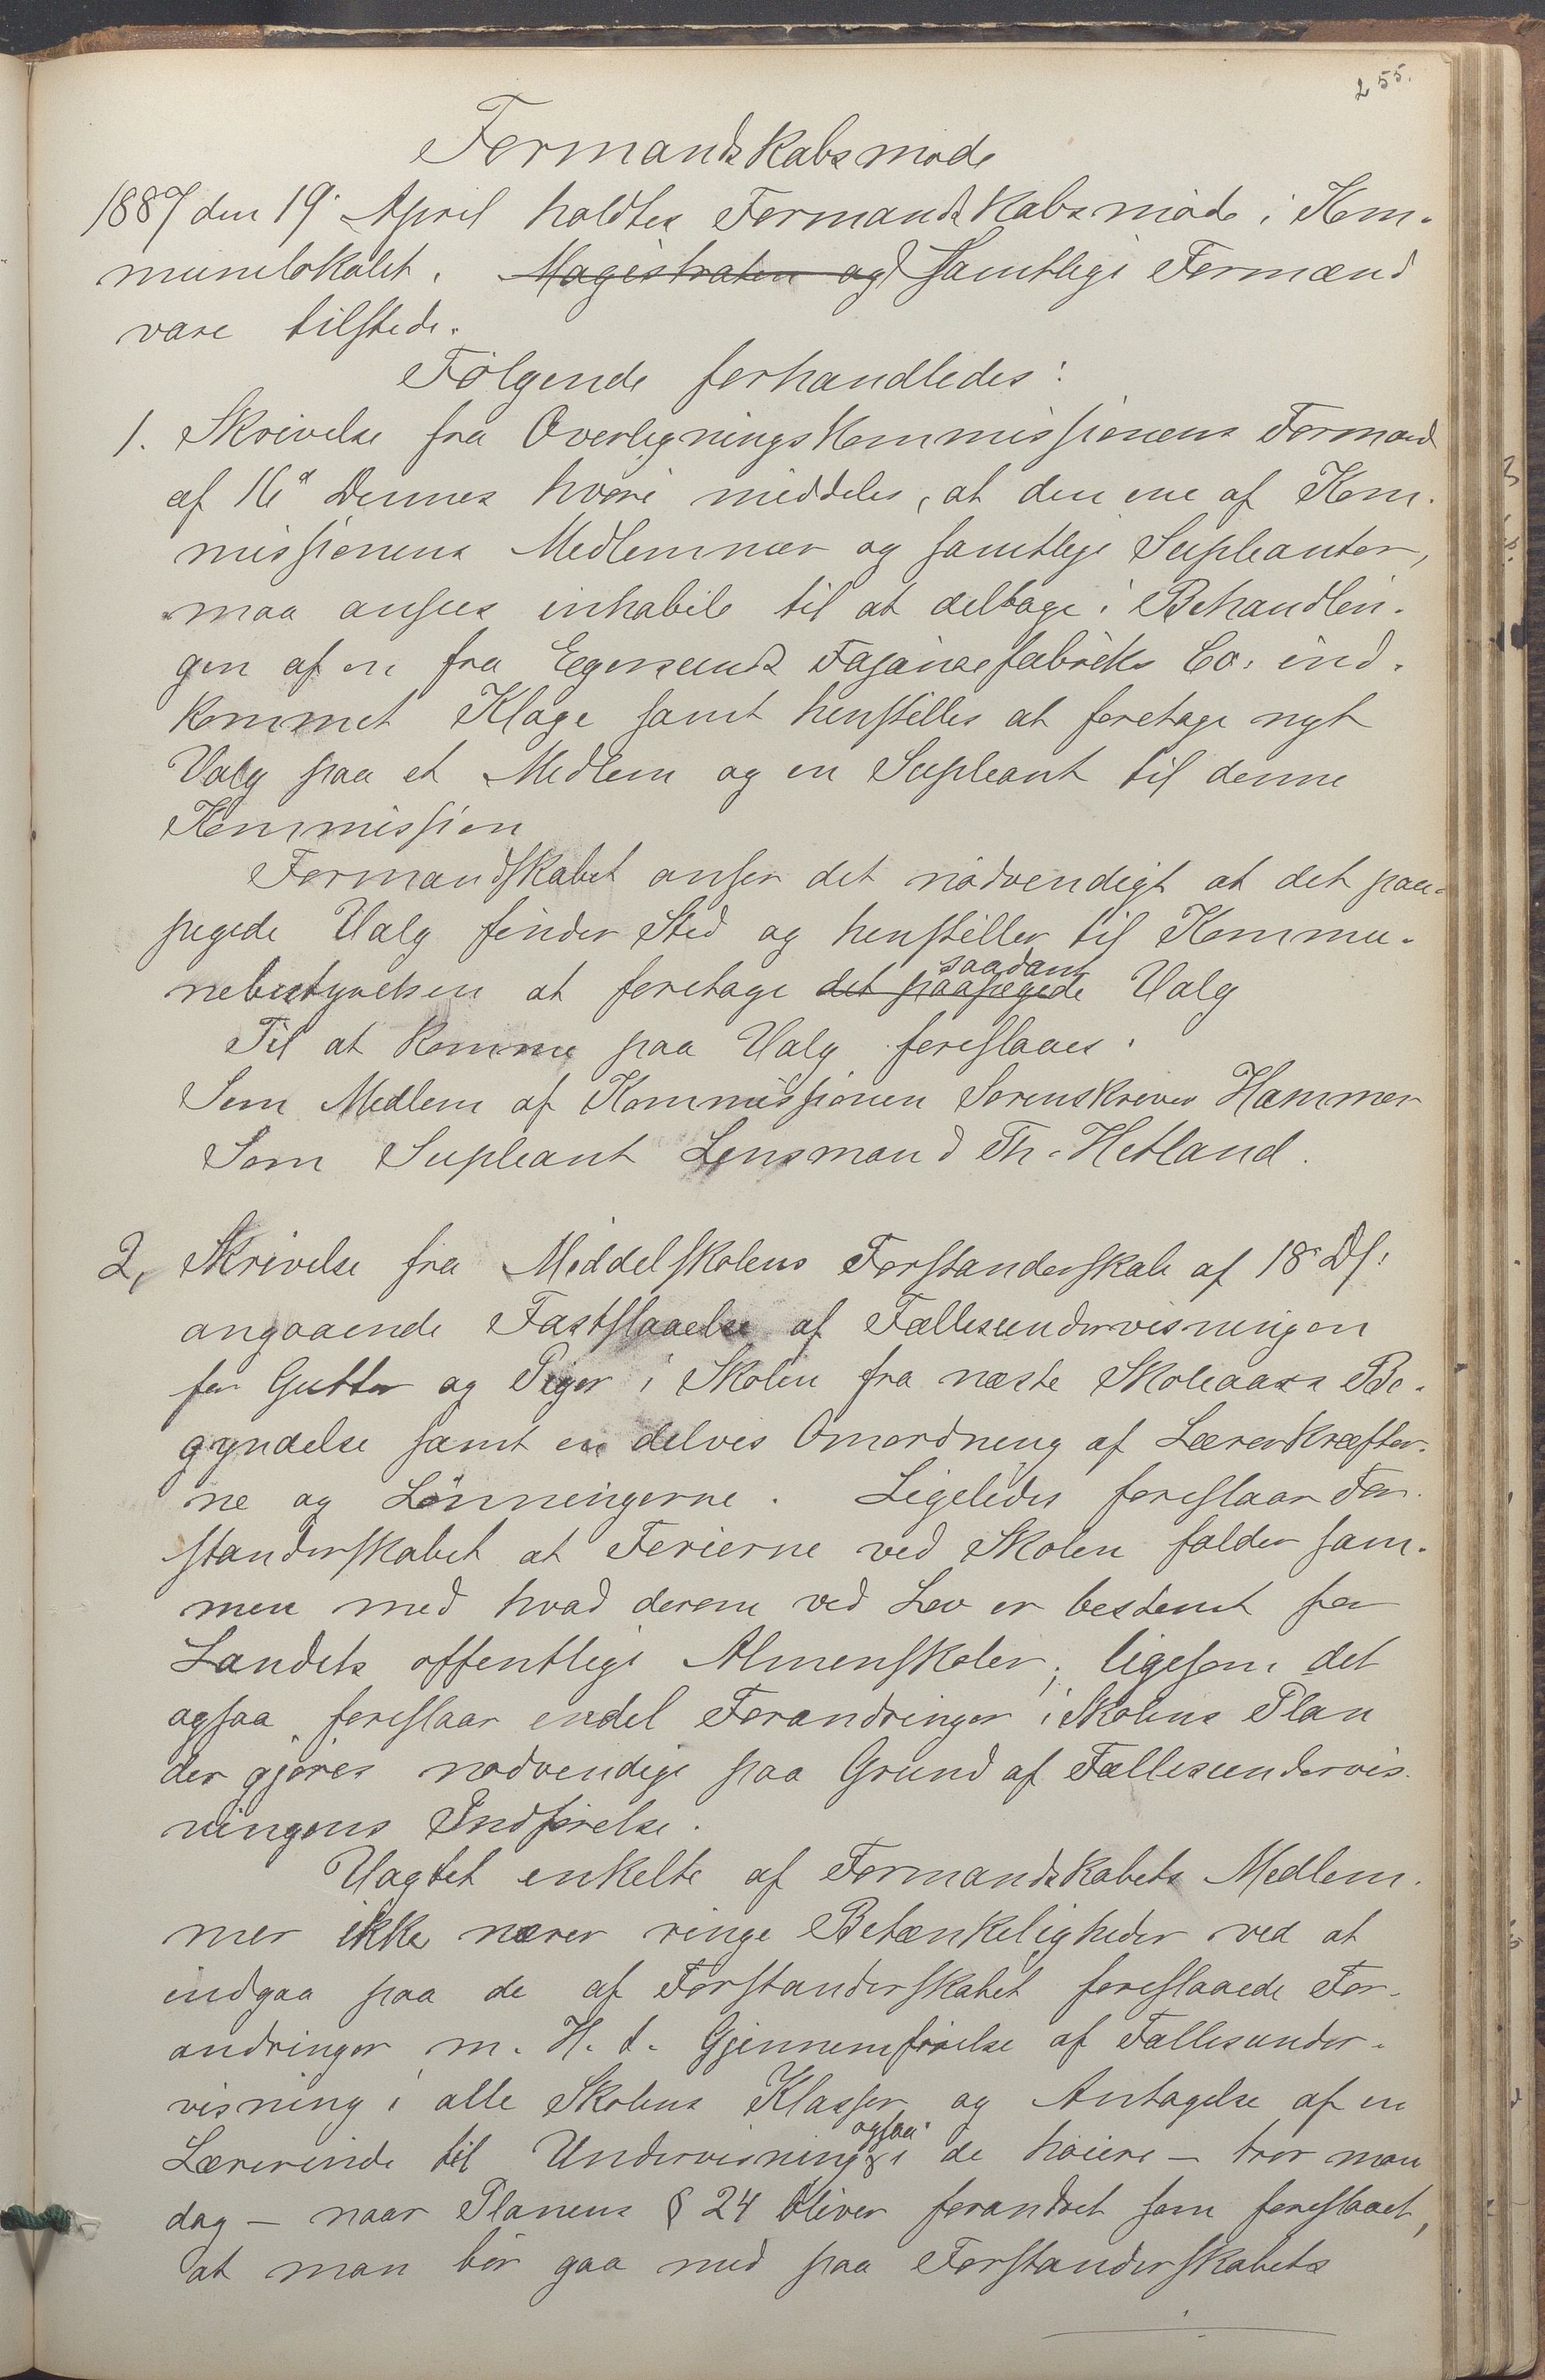 255.
Formandskabsmøde
1887 den 19. April holdtes Formandskabsmøde i Kom-
munelokalet. Magistraten og Samtlige Formænd
vare tilstede.
Følgende forhandledes:
1. Skrivelse fra Overligningskommissionens Formand
af 16d Dennes hvori meddeles, at den ene af Kom-
missionens Medlemmer og samtlige Supleanter,
maa ansees inhabile til at deltage i Behandlin-
gen af en fra Egersunds Fajansefabriks Co. ind-
kommet Klage samt henstilles at foretage nyt
Valg paa et Medlem og en Supleant til denne
Kommission
Formandskabet anser det nødvendigt at det paa-
pegede Valg finder Sted og henstiller til Kommu-
nebestyrelsen at foretage det paapegede saadant Valg
Til at komme paa Valg foreslaaes.
Som Medlem af Kommissionen Sorenskriver Hammer
Som Supleant Lensmand Th. Hetland.
2, Skrivelse fra Middelskolens Forstanderskab af 18. Ds.
angaaende Fastslaaelse af Fællesundervisningen
for Gutter og Piger i Skolen fra næste Skoleaars Be-
gyndelse samt en delvis Omordning af Lærerkræfter-
ne og Lønningerne. Ligeledes foreslaar For-
standerskabet at Ferierne ved Skolen falder sam-
men med hvad derom ved Lov er bestemt for
Landets offentlige Almenskoler, ligesom det
ogsaa foreslaar endel Forandringer i Skolens Plan
der gjøres nødvendige paa Grund af Fællesundervis-
ningens Indførelse.
Uagtet enkelte af Formandskabets Medlem-
mer ikke nærer ringe Betænkeligheder ved at
indgaa paa de af Forstanderskabet foreslaaede For-
andringer m. H. t. Gjennemførelse af Fællesunder-
visning i alle Skolens Klasser og Antagelse af en
Lærerinde til Undervisning ogsaa i de høiere – tror man
dog – naar Planens § 24 bliver forandret som foreslaaet,
at man bør gaa med paa Forstanderskabets